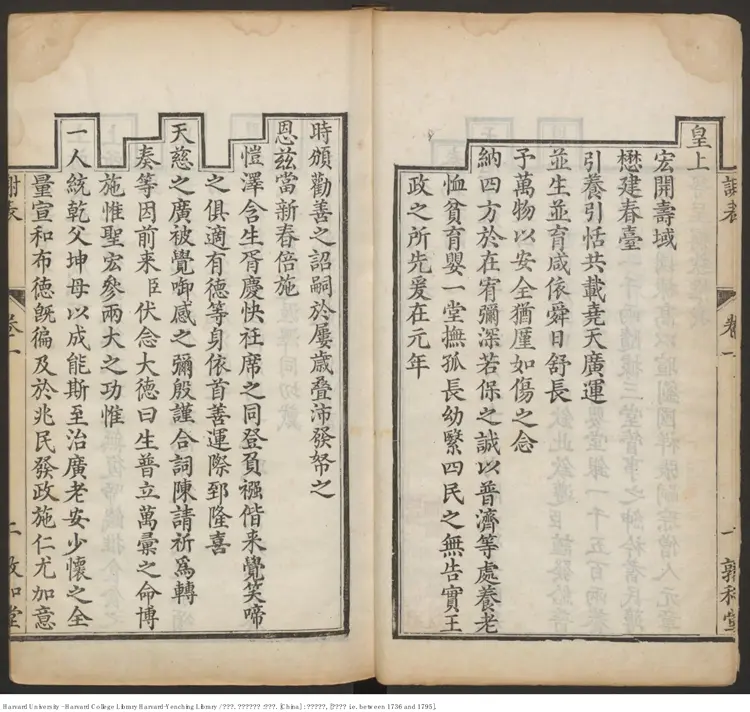 謝表　卷一　一　敦和堂
皇上
宏開壽域
懋建春臺
引養引恬共載堯天廣運
並生並育咸依舜日舒長
予萬物以安全猶厪如傷之念
納四方於在宥彌深若保之誠以普濟等處養老
恤貧育嬰一堂撫孤長幼繄四民之無告實王
政之所先爰在元年
時頒勸善之詔嗣於屢歲疊沛發帑之
恩茲當新春倍施
愷澤含生胥慶快衽席之同登負襁偕来覺笑啼
之俱適有德等身依首善運際郅隆喜
天慈之廣被覺啣感之彌殷謹合詞陳請祈爲轉
奏等因前来臣伏念大德曰生普立萬彙之命博
施惟聖宏參兩大之功惟
一人統乾父坤母以成能斯至治廣老安少懷之全
量宣和布德旣徧及於兆民發政施仁尤加意
謝表　卷一　二　敦和堂